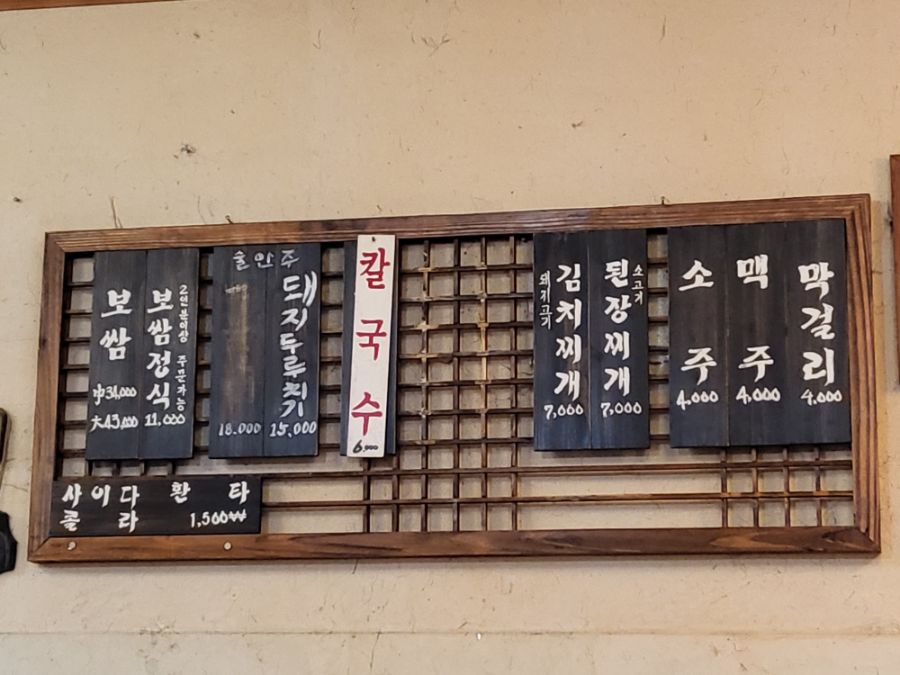 보쌈
中34,000
大43,000
보쌈정식
2인분이상 주문가능
11,000
술안주
18.000
돼지두루치기
15,000
칼국수
6,000
돼지고기
김치찌개
7,000
소고기
된장찌개
7,000
소주
4,000
맥주
4,000
막걸리
4,000
사이다 환타
콜라 1,500₩